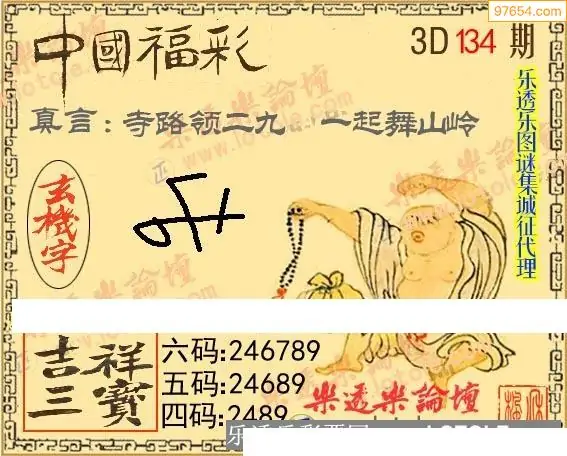 97654.com
中國福彩
3D 134 期
真言：寺路领二九 一起舞山岭
乐透乐图谜集城征代理
玄機字
吉祥三寶
六码:246789
五码:24689
四码:2489
樂透樂論壇